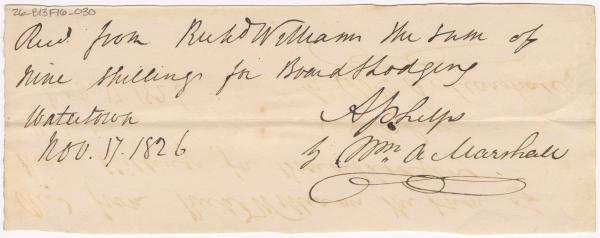 26-B13F16-030
Recd from Richd Williams the sum of
nine shillings for Board & Lodging
Watertown
Nov. 17. 1826
A Phelps
by Wm A Marshall